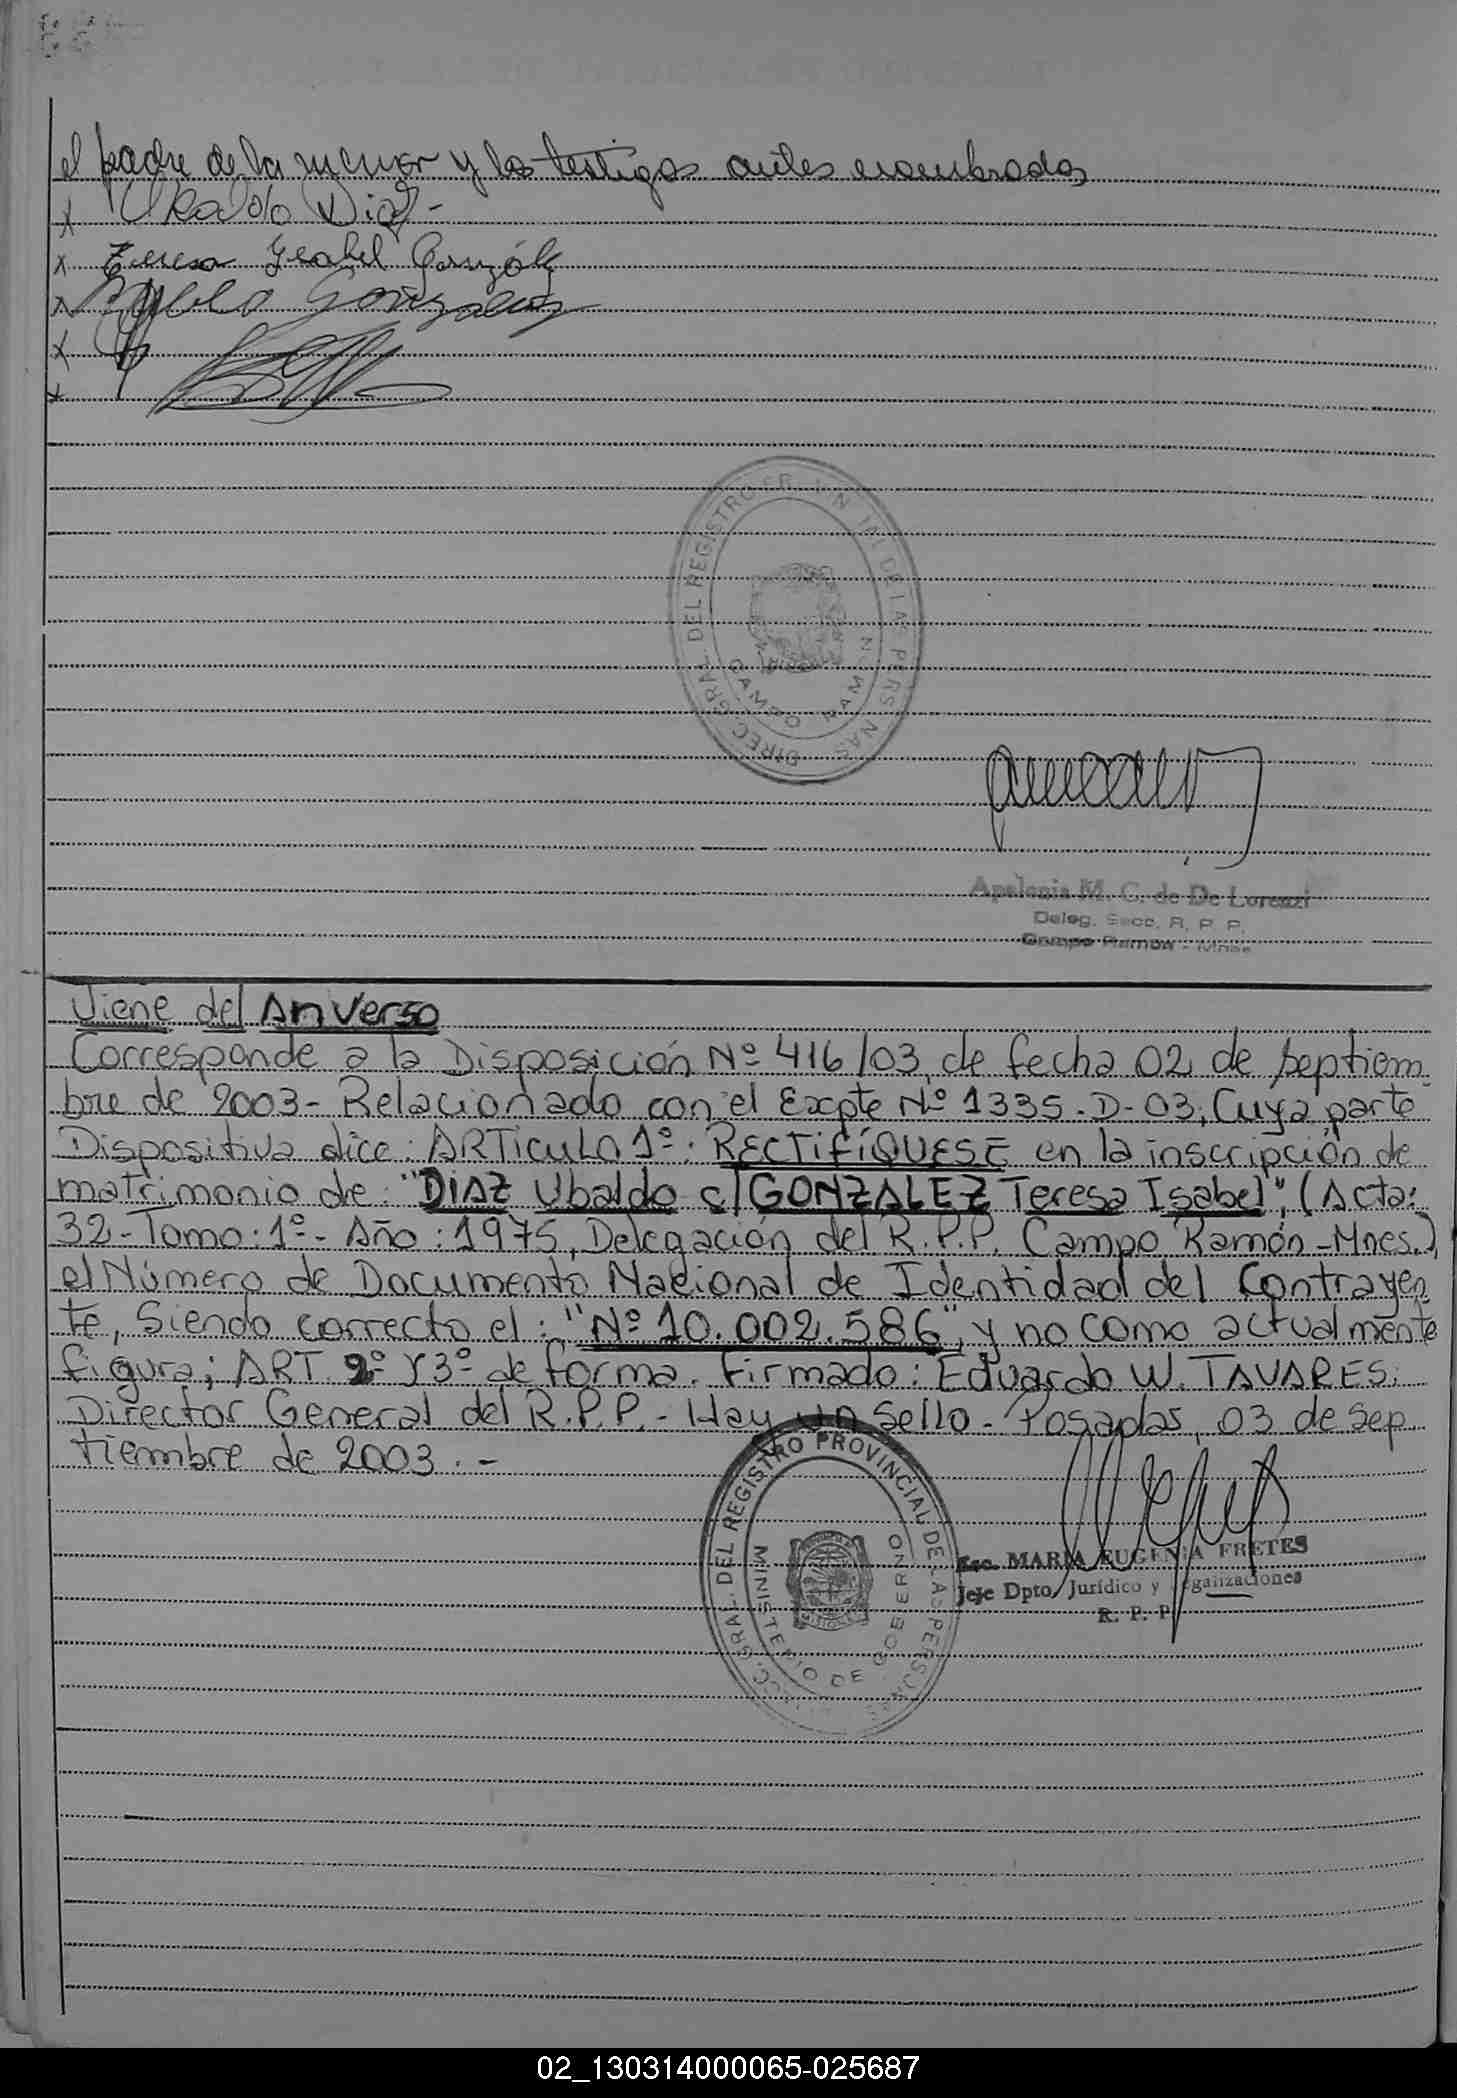 el padre de la menor y los testigos antes nombrados
x Ubaldo Diaz -
x Teresa Ysabel González
x Pablo Gonzalez
x
x
DIREC. GRAL. DEL REGISTRO PR VIN IAL DE LAS PERS NAS
CAMPO RAMON
Apolonia M. C. de De Lorenzi
Deleg. Secc. R. P. P.
Campo Ramon - Mnes
Viene del Anverso
Corresponde a la Disposición Nº 416/03, de fecha 02 de septiem
bre de 2003 - Relacionado con el Expte Nº 1335-D-03, Cuya parte
Dispositiva dice: ARTiculo 1º: RECTIFÍQUESE en la inscripción de
matrimonio de: "DIAZ Ubaldo c/ GONZALEZ Teresa Isabel", (Acta:
32 - Tomo: 1º - Año: 1975, Delegación del R.P.P. Campo Ramón - Mnes.),
el Número de Documento Nacional de Identidad del Contrayen
te, Siendo correcto el: "Nº 10.002.586", y no como actualmente
figura; ART. 2º Y 3º de forma. Firmado: Eduardo W. TAVARES:
Director General del R.P.P. - Hay un Sello - Posadas, 03 de Sep
tiembre de 2003. -
DIRECC. GRAL. DEL REGISTRO PROVINCIAL DE LAS PERSONAS
MINISTERIO DE GOBIERNO
Esc. MARIA EUGENIA FRETES
Jefe Dpto. Jurídico y Legalizaciones
R. P. P.
02_130314000065-025687